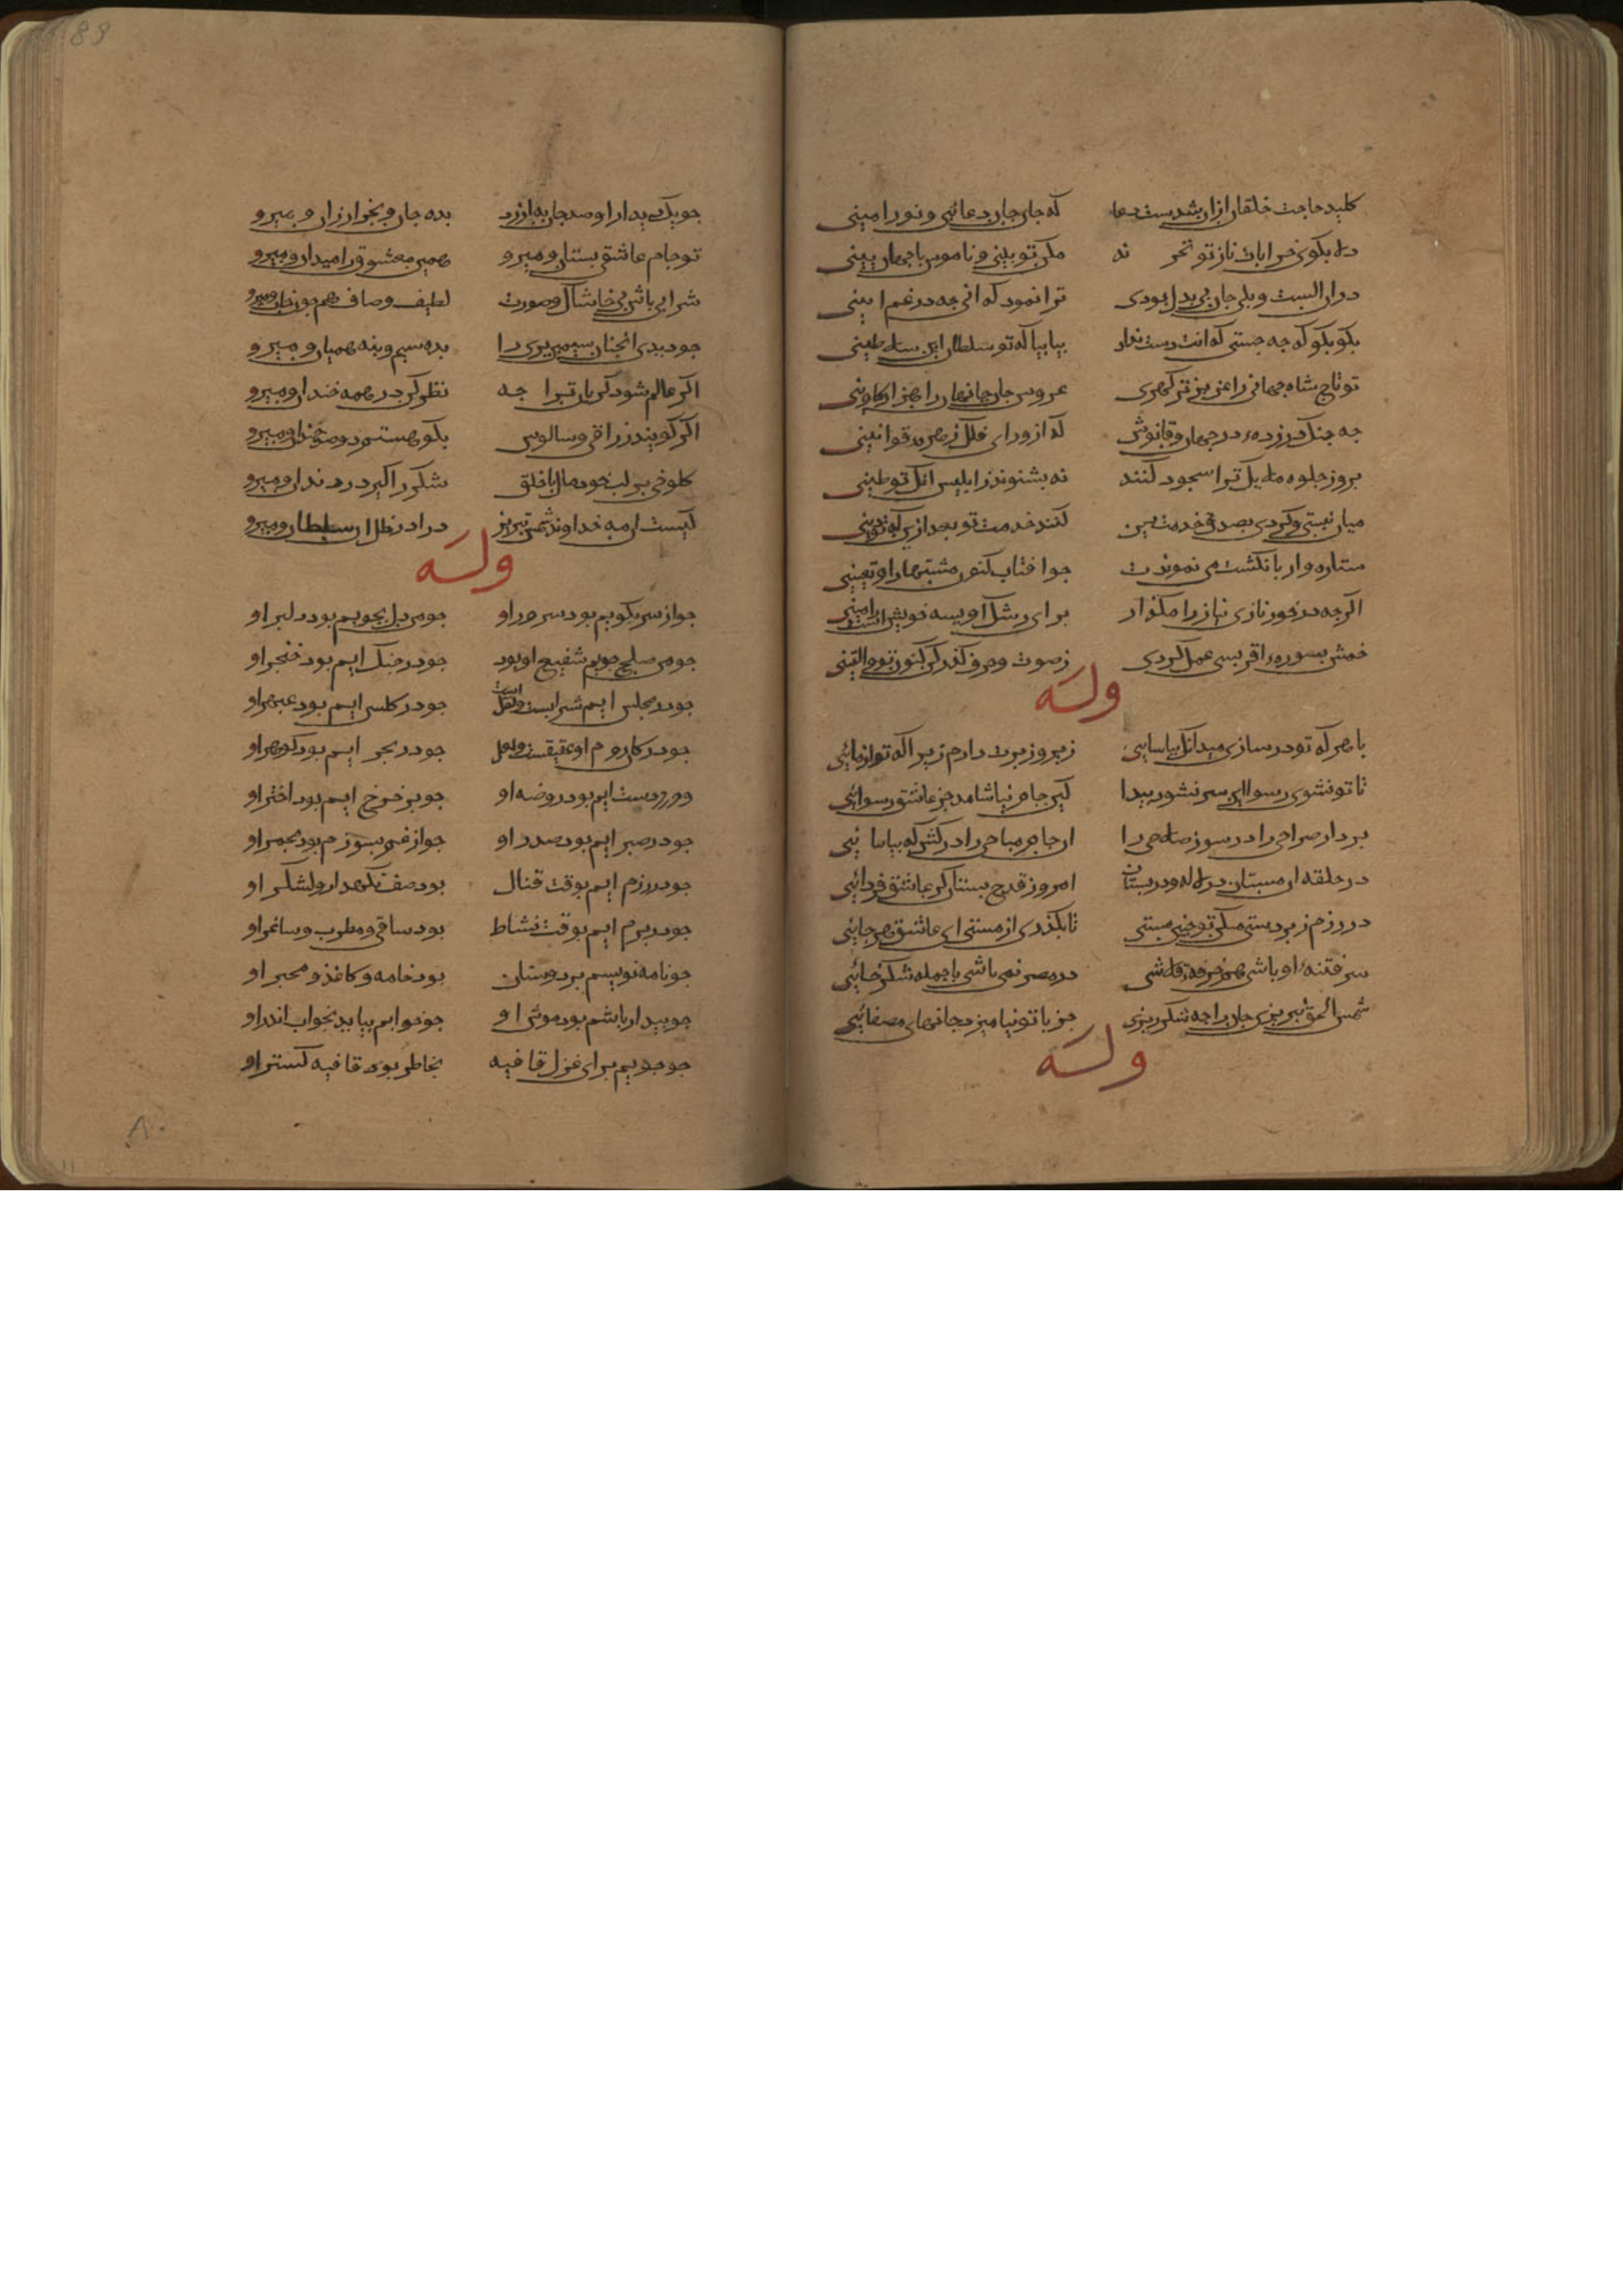 کلید حاجت خلقان ازان شدست دعا که جان جان دعائی و نور امینی
دلا بکوی خرابات ناز تو نخر ند مکن تو بینی و ناموس تا جهان بینی
در ان الست و بلی جان بی بدن بودی ترا نمود که انی چه در غم اینی
بکو بکو که چه جستی که انت دست نداد بیا بیا که تو سلطان این سلاطینی
تو تاج شاه جهانی را عزیزتر کهری عروس جان جهان را هزار کاوینی
چه چنک در زده در جهان و قانونش که از ورای فلک زهره قوانینی
بروز جلوه ملایک ترا سجود کنند نه بشنوند ز ابلیس انک تو طینی
میان ببستی و کردی بصدق خدمت دین کنند خدمت تو بعد ازین که تو دینی
ستاره وار بانکشت می نمودندت چو افتاب کنون مشتهر او تعیینی
اکر چه در خور نازی نیاز را مکذار برای رشک
خمش بسوره اقرا بسی عمل کردی ز صوت و حرف کذر کن کنون تو و التینی
وله
با هر که تو در سازی میدانک نیاسایی زیر و زبرت دارم زیرا که تو از مایی
تا تو نشوی رسوا این سر نشود پیدا کین جام نیاشامد جز عاشق رسوائی
بردار صراحی را در سوز صلاحی را ان جام مباحی را درکش که بیاسا نیی
در حلقه ان مستان در لاله و در بستان امروز قدح بستان کر عاشق فردائی
در رزم زبردستی میکن تو چنین مستی تا بکذری از مستی ای عاشق هر جایی
سر فتنه اوباشی همخرقه قلاشی در مصر نمی باشی تا جمله شکر خایی
شمس الحق تبریزی جان را چه شکر ریزی جز با تو نیامیزد جانهای مصفائی
وله
چو یک دیدار او صد جان به ارزد بده جان و بخر ارزان و میرو
تو جام عاشقی بستان و میرو همین معشوق را میدان و میرو
شرابی باش بی خاشاک و صورت لطیف و صاف همچون جان و میرو
چو دیدی انچنان سیمین بری را بده سیم و بنه همیان و میرو
اکر عالم شود کریان ترا چه نظر کن در مه خندان و میرو
اکر کویند زراقی و سالوس بکو هستم دو صد چندان و میرو
کلوخی بر لب خود مال با خلق شکر را کیر در دندان و میرو
کیست ان مه خداوند شمس تبریز درا در ظل ان سلطان و میرو
وله
چو از سر بکویم بود سرور او چو من دل بجویم بود دلبر او
چو من صلح جویم شفیع او بود چو در جنک ایم بود خنجر او
چو در مجلس ایم شرابست و نقل است چو در کلشن ایم بود عبهر او
چو در کان روم او عقیقست و لعل چو در بحر ایم بود کوهر او
چو در دشت ایم بود روضه او چو بر چرخ ایم بود اختر او
چو در صبر ایم بود صدر او چو از غم بسوزم بود مجمر او
چو در رزم ایم بوقت قتال بود صف نکهدار و لشکر او
چو در بزم ایم بوقت نشاط بود ساقی و مطرب و ساغر او
چو نامه نویسم بر دوستان بود خامه و کاغذ و محبر او
چو بیدار باشم بود هوش او چو خوابم بیاید بخواب اندر او
چو جویم برای غزل قافیه بخاطر بود قافیه کستر او